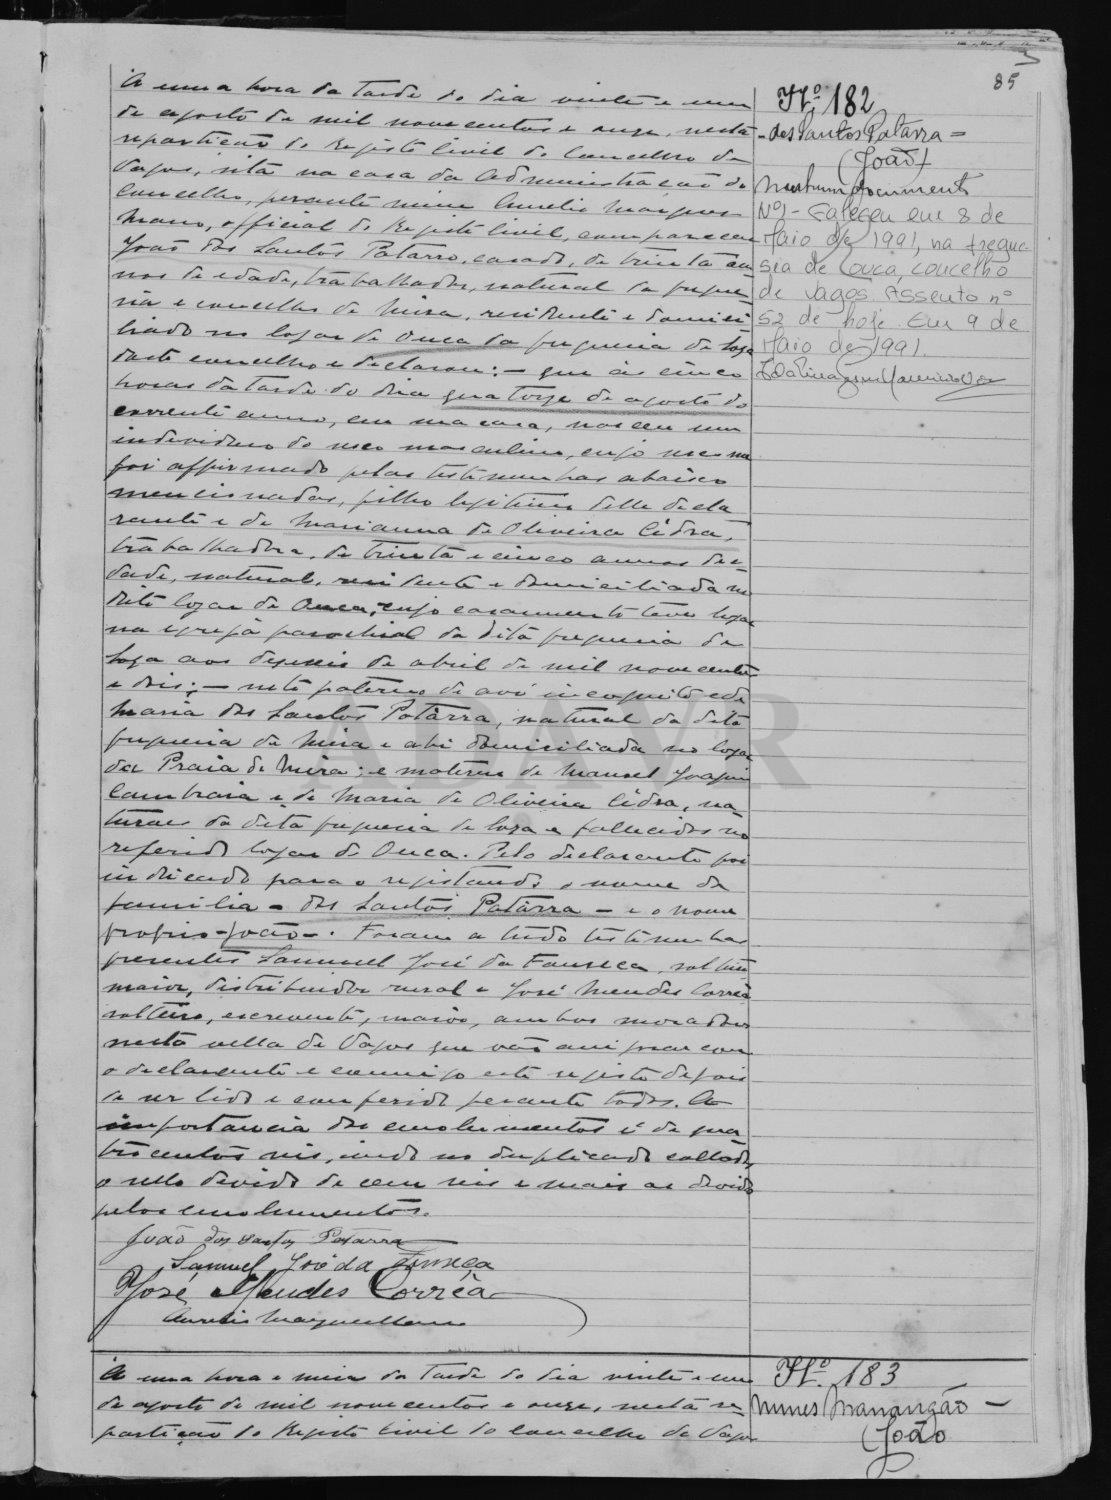 85
A uma hora da tarde do dia vinte e um
de agosto de mil novecentos e onze, nesta
repartição do Registo Civil do Concelho de
Vagos, sita na casa da Administração do
Concelho, perante mim Aurelio Marques
Mano, official do Registo Civil, compareceu
João dos Santos Patarra, casado, de trinta an
nos de edade, trabalhador, natural da fregue
sia e concelho de Mira, residente e domici
liado no logar de Ouca da freguesia de Soza
deste concelho e declarou: — que ás cinco
horas da tarde do dia quatorze de agosto do
corrente anno, em sua casa, nasceu um
individuo do sexo masculino, cujo sexo me
foi affirmado pelas testemunhas abaixo
mencionadas, filho legitimo delle decla
rante e de Marianna de Oliveira Cidra,
trabalhadora, de trinta e cinco annos de e
dade, natural, residente e domiciliada no
dito logar de Ouca, cujo casamento teve logar
na egreja parochial da dita freguesia de
Soza aos deseseis de abril de mil novecentos
e dois; — neto paterno de avô incognito e de
Maria dos Santos Patarra, natural da dita
freguesia de Mira e ahi domiciliada no logar
da Praia de Mira; e materno de Manuel Joaquim
Cambraia e de Maria de Oliveira Cidra, na
turaes da dita freguesia de Soza e fallecidos no
referido logar de Ouca. Pelo declarante foi
indicado para o registando o nome de
familia - dos Santos Patarra - e o nome
proprio - João -. Foram a tudo testemunhas
presentes Samuel José da Fonseca, solteiro
maior, distribuidor rural e José Mendes Corrêa
solteiro, escrevente, maior, ambos moradores
nesta villa de Vagos que vão assignar com
o declarante e commigo este registo depois
de ser lido e conferido perante todos. A
importancia dos emolumentos é de qua
trocentos reis, indo no duplicado collado
o sello devido de cem reis e mais os devidos
pelos emolumentos.
João dos Santos Patarra
Samuel José da Fonseca
José Mendes Corrêa
Aurelio Marques Mano
Nº 182
= dos Santos Patarra =
(João)
Nenhum documento
Nº1 - Faleceu em 8 de
Maio de 1991, na fregue
sia de Ouca, concelho
de Vagos. Assento nº
52 de hoje. Em 9 de
Maio de 1991.
A uma hora e meia da tarde do dia vinte e um
de agosto de mil novecentos e onze, nesta re
partição do Registo Civil do Concelho de Vagos
Nº 183
Nunes Manangão —
(João
ADAVR